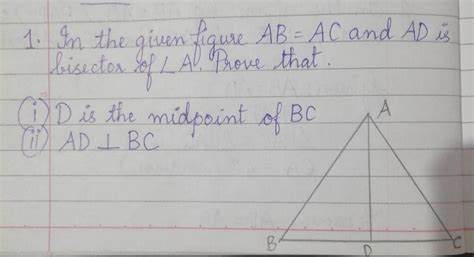 1. In the given figure AB = AC and AD is
bisector of ∠A. Prove that.
(i) D is the midpoint of BC
(ii) AD ⊥ BC
A
B
D
C